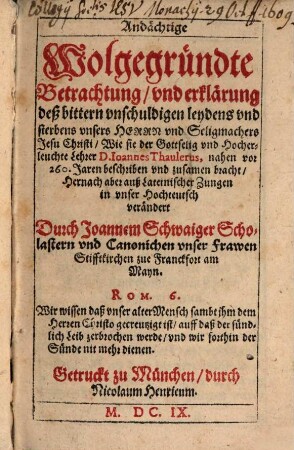 Collegij Soctis IESV Monachij
Andächtige
Wolgegründte
Betrachtung / vnd erklärung
deß bittern vnschuldigen leydens vnd
sterbens vnsers HERRN vnd Seligmachers
Jesu Christi / Wie sie der Gottselig vnd Hocher-
leuchte Lehrer D. Ioannes Thaulerus, nahen vor
260. Jaren beschriben vnd zusamen bracht /
Hernach aber auß Lateinischer Zungen
in vnser Hochteutsch
verändert
Durch Joannem Schwaiger Scho-
lastern vnd Canonichen vnser Frawen
Stifftkirchen zue Franckfort am
Mayn.
ROM. 6.
Wir wissen daß vnser alter Mensch sambt ihm dem
Herren Christo gecreutzigt ist / auff daß der sünd-
lich Leib zerbrochen werde / vnd wir forthin der
Sünde nit mehr dienen.
Getruckt zu München / durch
Nicolaum Henricum.
M. DC. IX.